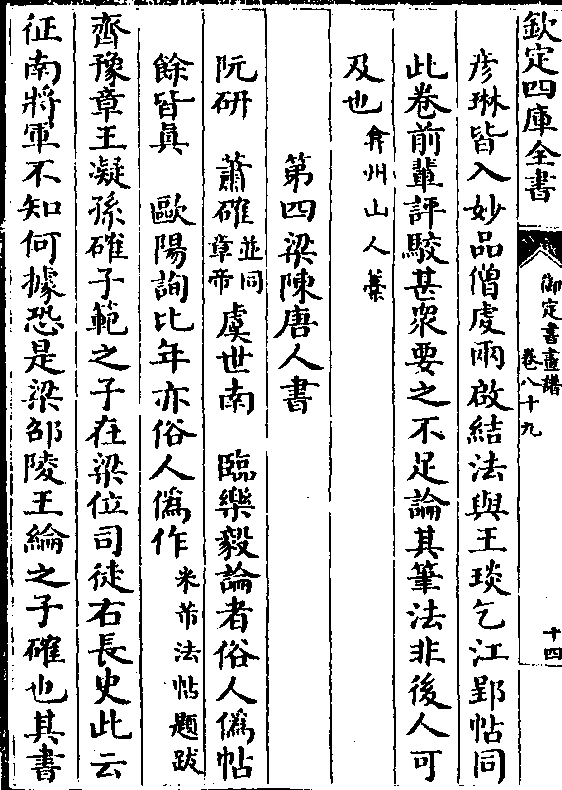 欽定四庫全書
御定書畫譜
卷八十九
十四
彦琳皆入妙品僧䖍兩啟結法與王琰乞江郢帖同
此卷前輩評駮甚衆要之不足論其筆法非後人可
及也弇州山人藁
第四梁陳唐人書
阮研　蕭確並同章帝虞世南　臨樂毅論者俗人偽帖
餘皆眞　歐陽詢比年亦俗人偽作米芾法帖題跋
齊豫章王凝孫確子範之子在梁位司徒右長史此云
征南將軍不知何據恐是梁邵陵王綸之子確也其書